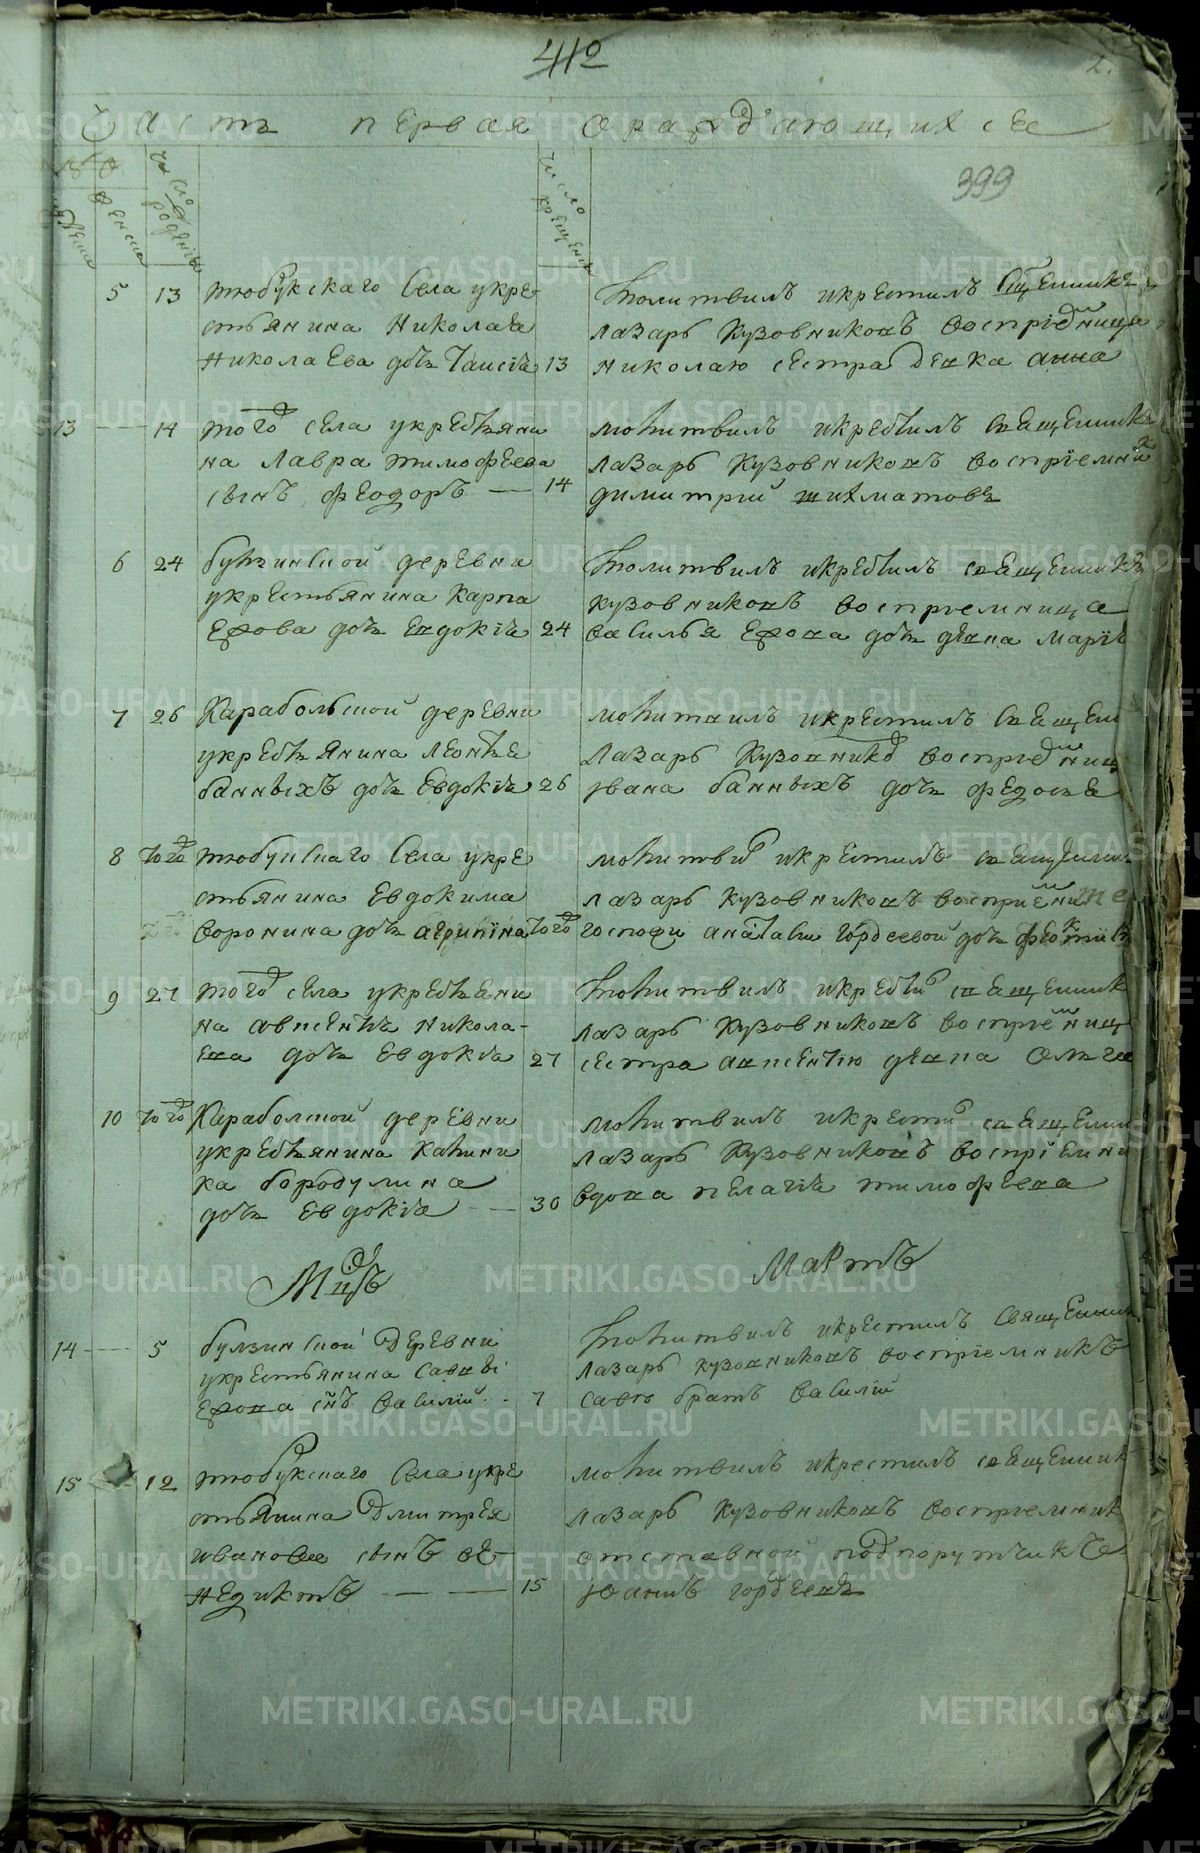 412
2.
Часть первая ораждающихсе
399
число рождения
число крещения
5 13 тюбукскаго села укре-
стьянина Николая
Николаева дочь Таисия 13
молитвилъ икрестилъ
лазарь Кузовниковъ
николаю сестра девка анна
13 14 того села укрестьяни
на лавра тимофеева
сынъ феодоръ 14
молитвилъ икрестилъ священникъ
лазарь Кузовниковъ восприемникъ
димитрий шихматовъ
6 24 булзинской деревни
укрестьянина карпа
Ерова дочь евдокия 24
молитвилъ икрестилъ священникъ
кузовниковъ восприемница
василья ерова дочь девка мария
7 26 Карабольской деревни
укрестьянина леонтья
банныхъ дочь Евдокия 26
молитвилъ икрестилъ священ
лазарь Кузовнико восприемниц
ивана банныхъ дочь федосья
8 того тюбукскаго села укре
стьянина Евдокима
воронина дочь агрипина того
молитви икрестилъ священник
лазарь кузовниковъ восприем
госпожи гордеевой дочь
9 27 того села укрестьяни
на авксентья никола-
ева дочь евдокия 27
молитвилъ икрести священник
лазарь Кузовниковъ восприемниц
сестра авксентию девка Ольга
10 того Караболской деревни
укрестьянина калини
ка бородулина
дочь евдокия 30
молитвилъ икрести священни
лазарь Кузовниковъ восприемни
вдова пелагия тимофеева
Мцъ Мартъ
14 5 булзинской деревни
укрестьянина саввы
ерова снъ василий 7
молитвилъ икрестилъ священник
лазарь кузовниковъ восприемникъ
савы братъ василий
15 12 тюбукскаго села укре
стьянина Дмитрея
иванова сынъ ве-
недиктъ 15
молитвилъ икрестилъ священник
лазарь кузовниковъ восприемник
отставной подпорутчикъ
иванъ гордеевъ
METRIKI.GASO-URAL.RU